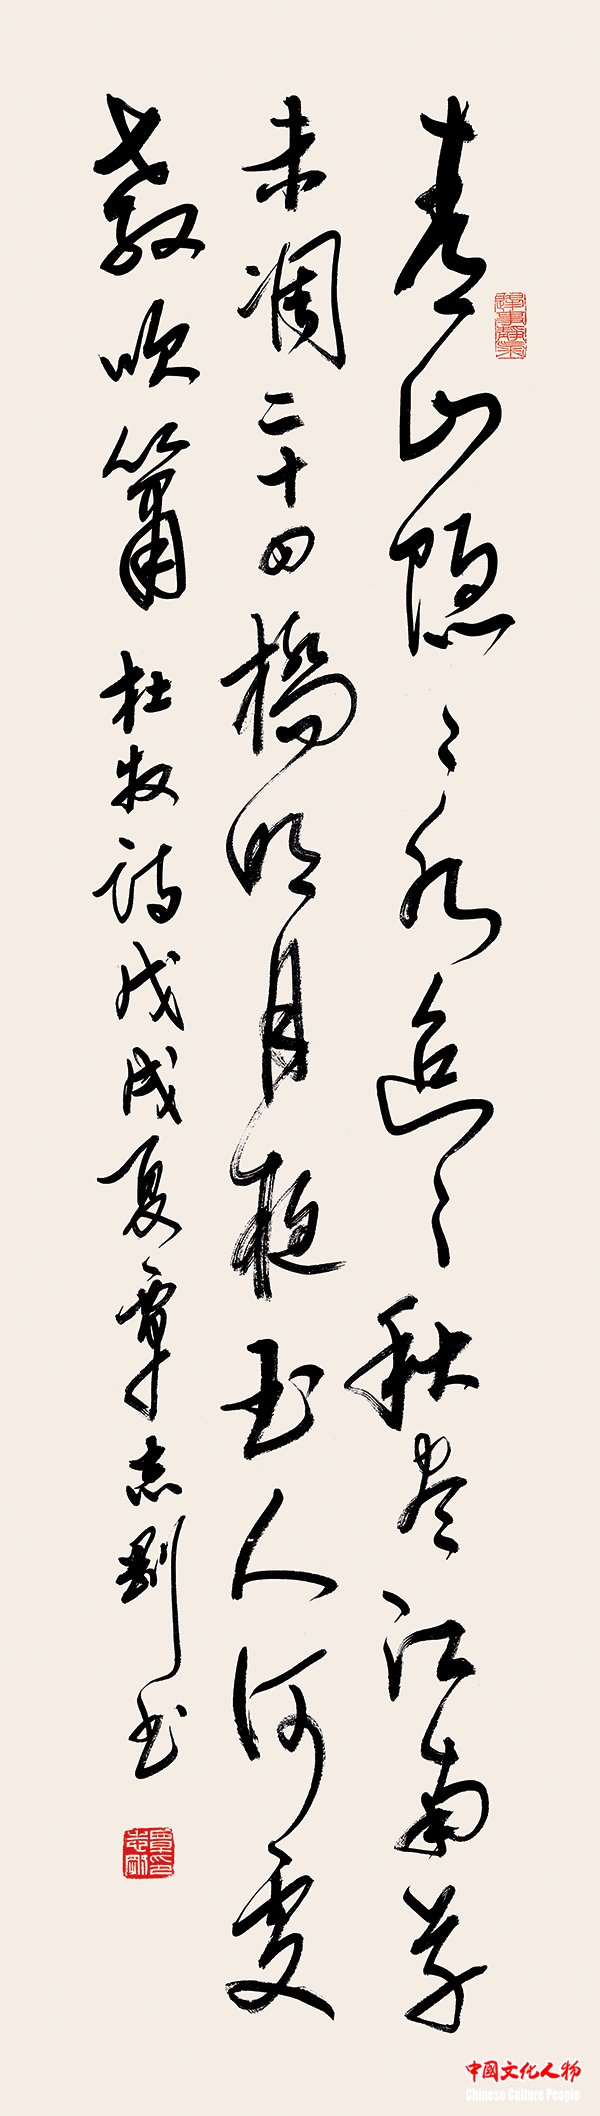 青山隐〻水迢〻秋尽江南草
未凋二十四橋明月夜玉人何處
教吹簫 杜牧诗戊戌夏覃志剛书
中國文化人物
Chinese Culture People